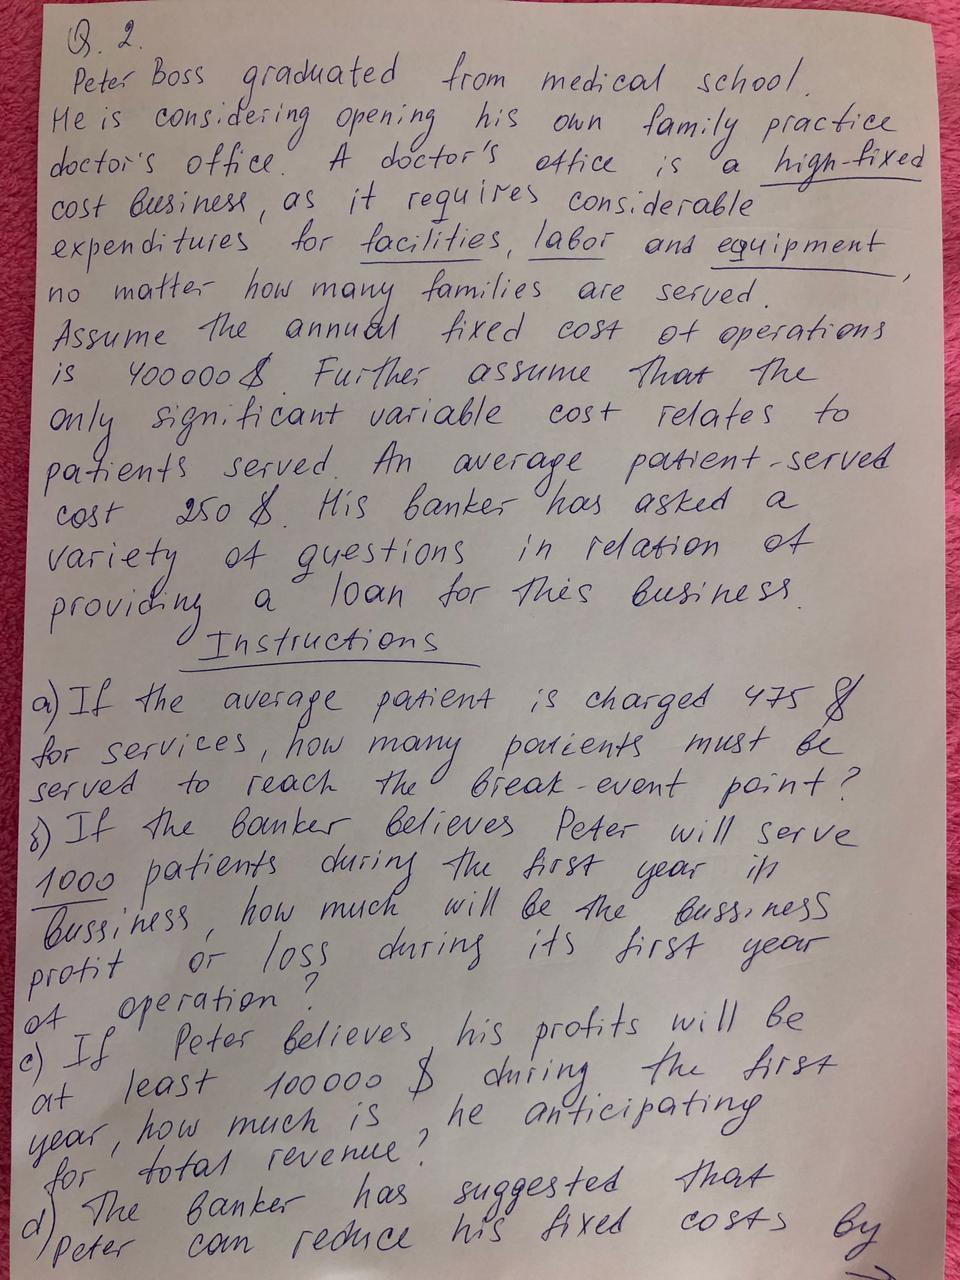 Q. 2.
Peter Boss graduated from medical school.
He is considering opening his own family practice
doctor's office. A doctor's office is a high-fixed
cost business, as it requires considerable
expenditures for facilities, labor and equipment,
no matter how many families are served.
Assume the annual fixed cost of operations
is 400000$. Further assume that the
only significant variable cost relates to
patients served. An average patient-served
cost 250$. His banker has asked a
variety of questions in relation of
providing a loan for this business.
Instructions
a) If the average patient is charged 475$
for services, how many patients must be
served to reach the break-event point?
b) If the banker believes Peter will serve
1000 patients during the first year in
bussiness, how much will be the bussiness
profit or loss during its first year
of operation?
c) If Peter believes his profits will be
at least 100000$ during the first
year, how much is he anticipating
for total revenue?
d) The banker has suggested that
Peter can reduce his fixed costs by